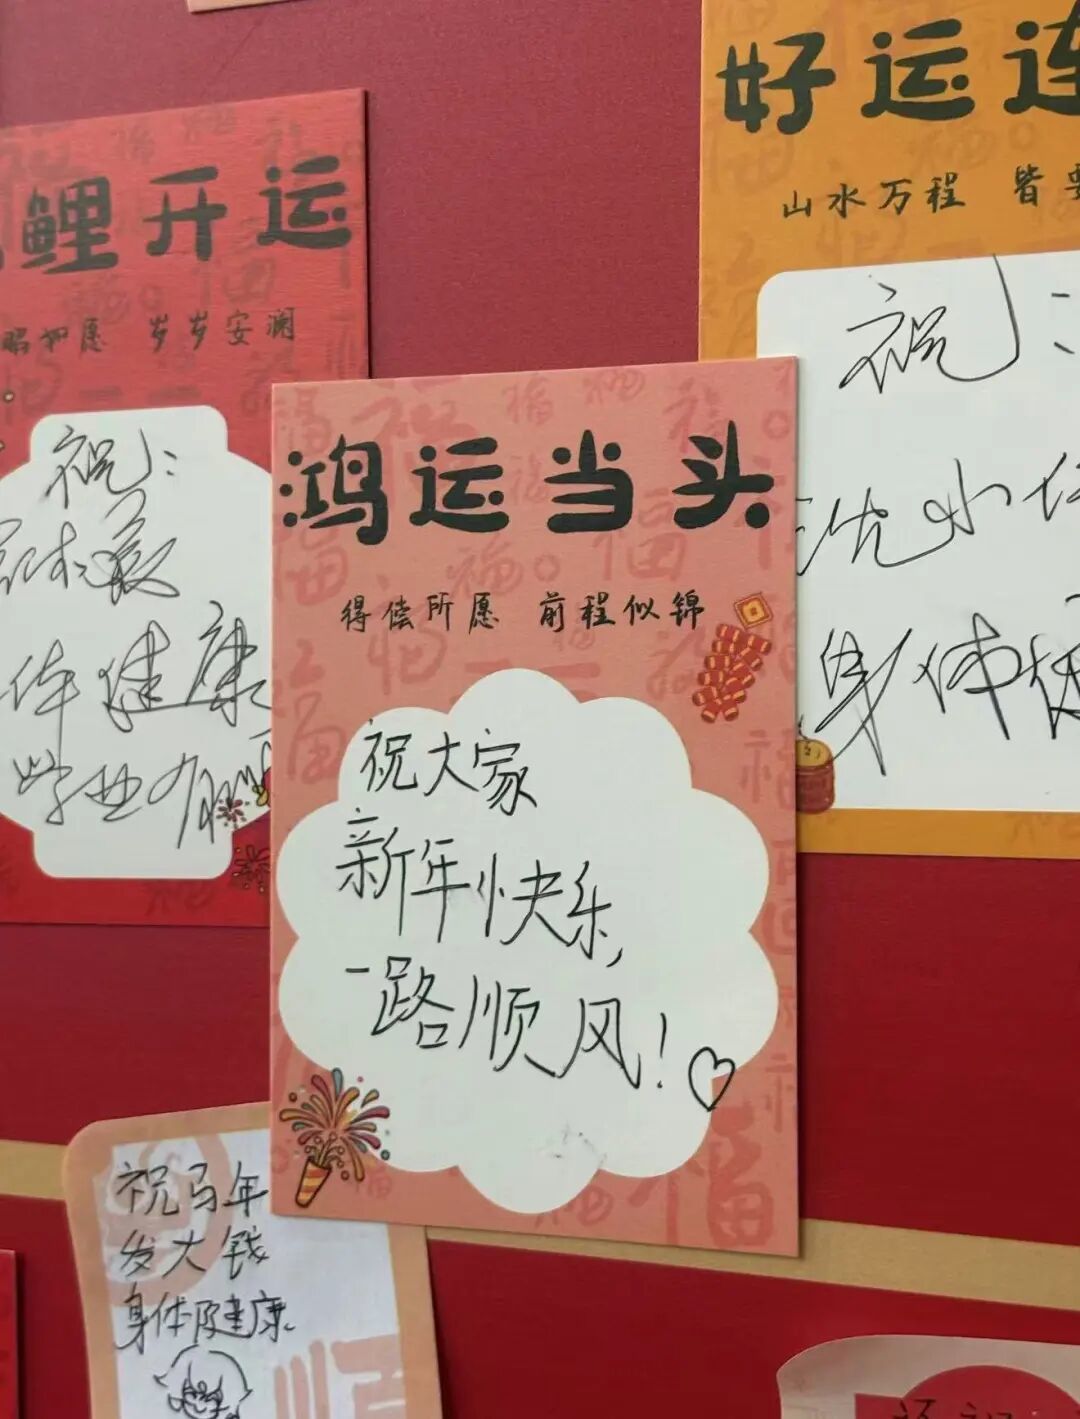 鲤开运
如愿 岁岁安澜
祝:
体健康
学业有
好运连
山水万程 皆要
祝:
沈小
身体健
鸿运当头
得偿所愿 前程似锦
祝大家
新年快乐,
一路顺风!♡
祝马年
发大钱
身体健康